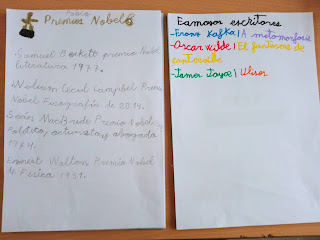 Premios Nobel
-Samuel Beckett premio Nobel
literatura 1977.
-William Cecil Campbel Premio
Nobel 2014.
-Seán MacBride Premio Nobel
político, activista y abogada
1974.
-Ernest Walton Premio Nobel
de Física 1951.
Famosos escritores
-Franz Kafka | A metamorfosis
-Oscar Wilde | El fantasma de
canterville
-James Joyce | Ulises